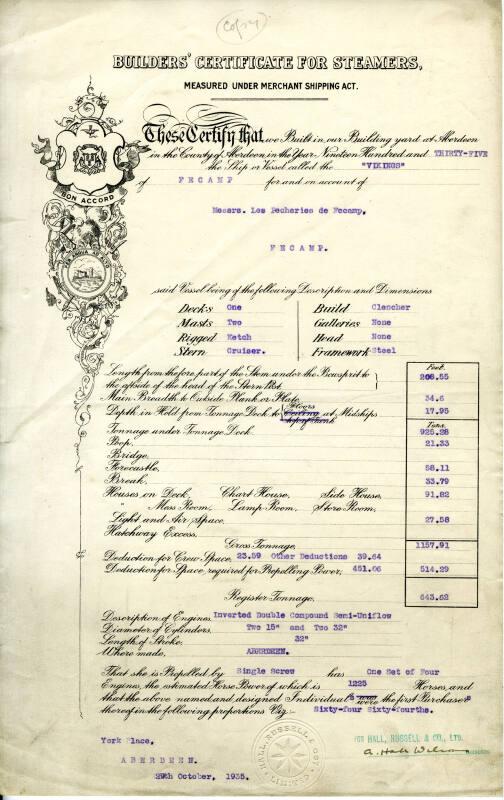 (Copy)
BUILDERS' CERTIFICATE FOR STEAMERS,
MEASURED UNDER MERCHANT SHIPPING ACT.
These Certify that we Built in our Building yard at Aberdeen
in the County of Aberdeen in the Year Nineteen Hundred and THIRTY-FIVE
the Ship or Vessel called the "VIKINGS"
of FECAMP for and on account of
BON ACCORD
Messrs. Les Pecheries de Fecamp,
FECAMP.
said Vessel being of the following Description and Dimensions
Decks One Build Clencher
Masts Two Galleries None
Rigged Ketch Head None
Stern Cruiser. Framework Steel
Feet.
Length from the fore part of the Stem under the Bowsprit to the aftside of the head of the Stern Post 208.55
Main Breadth to Outside Plank or Plate 34.6
Depth in Hold from Tonnage Deck to Floors Ceiling at Midships 17.95
Tons.
Tonnage under Tonnage Deck 925.28
Poop 21.33
Bridge
Forecastle 58.11
Break 33.79
Houses on Deck, Chart House, Side House, 91.82
" Mess Room, Lamp Room, Store Room,
Light and Air Space 27.58
Hatchway Excess.
Gross Tonnage, 1157.91
Deduction for Crew Space, 23.59 Other Deductions 39.64
Deduction for Space required for Propelling Power, 451.06 514.29
Register Tonnage, 643.62
Description of Engines Inverted Double Compound Semi-Uniflow
Diameter of Cylinders Two 15" and Two 32"
Length of Stroke 32"
Where made, ABERDEEN.
That she is Propelled by Single Screw has One Set of Four
Engines, the estimated Horse Power of which is 1225 Horses, and
that the above named and designed Individual s was were the first Purchasers
thereof in the following proportions Viz Sixty-four Sixty-fourths.
York Place,
ABERDEEN.
29th October, 1935.
HALL, RUSSELL & COY LIMITED
FOR HALL, RUSSELL & CO., LTD.
A. Hall Wilson